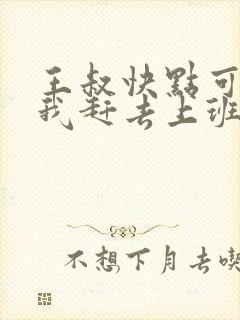 王叔快點可
我赶去上班
不想下月去喫